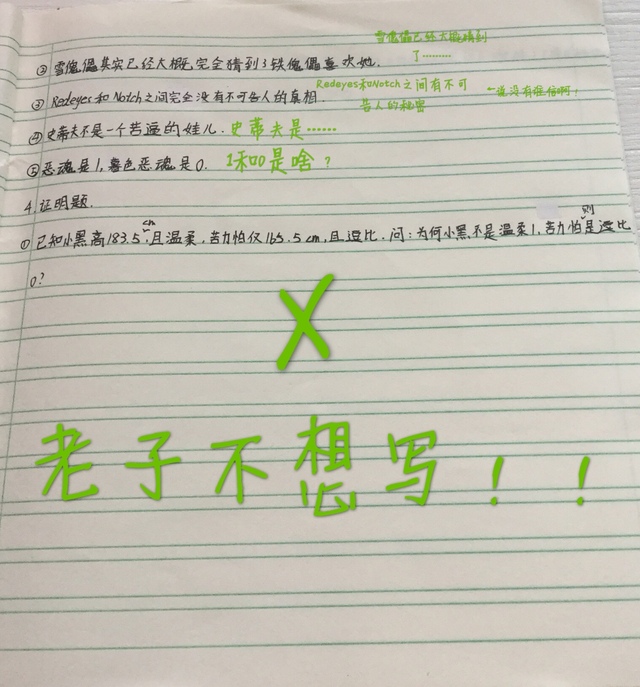 雪傀儡已经大概猜到
了………
②雪傀儡其实已经大概完全猜到了铁傀儡喜欢她.
Redeyes和Notch之间有不可
告人的秘密
③Redeyes和Notch之间完全没有不可告人的真相.
④史蒂夫不是一个苦逼的娃儿.史蒂夫是……
⑤恶魂是1,暮色恶魂是0. 1和0是啥?
4.证明题.
①已知小黑高183.5cm,且温柔,苦力怕仅165.5cm,且逗比.问:为何小黑不是温柔1,苦力怕则是逗比
0?
X
老子不想写!!